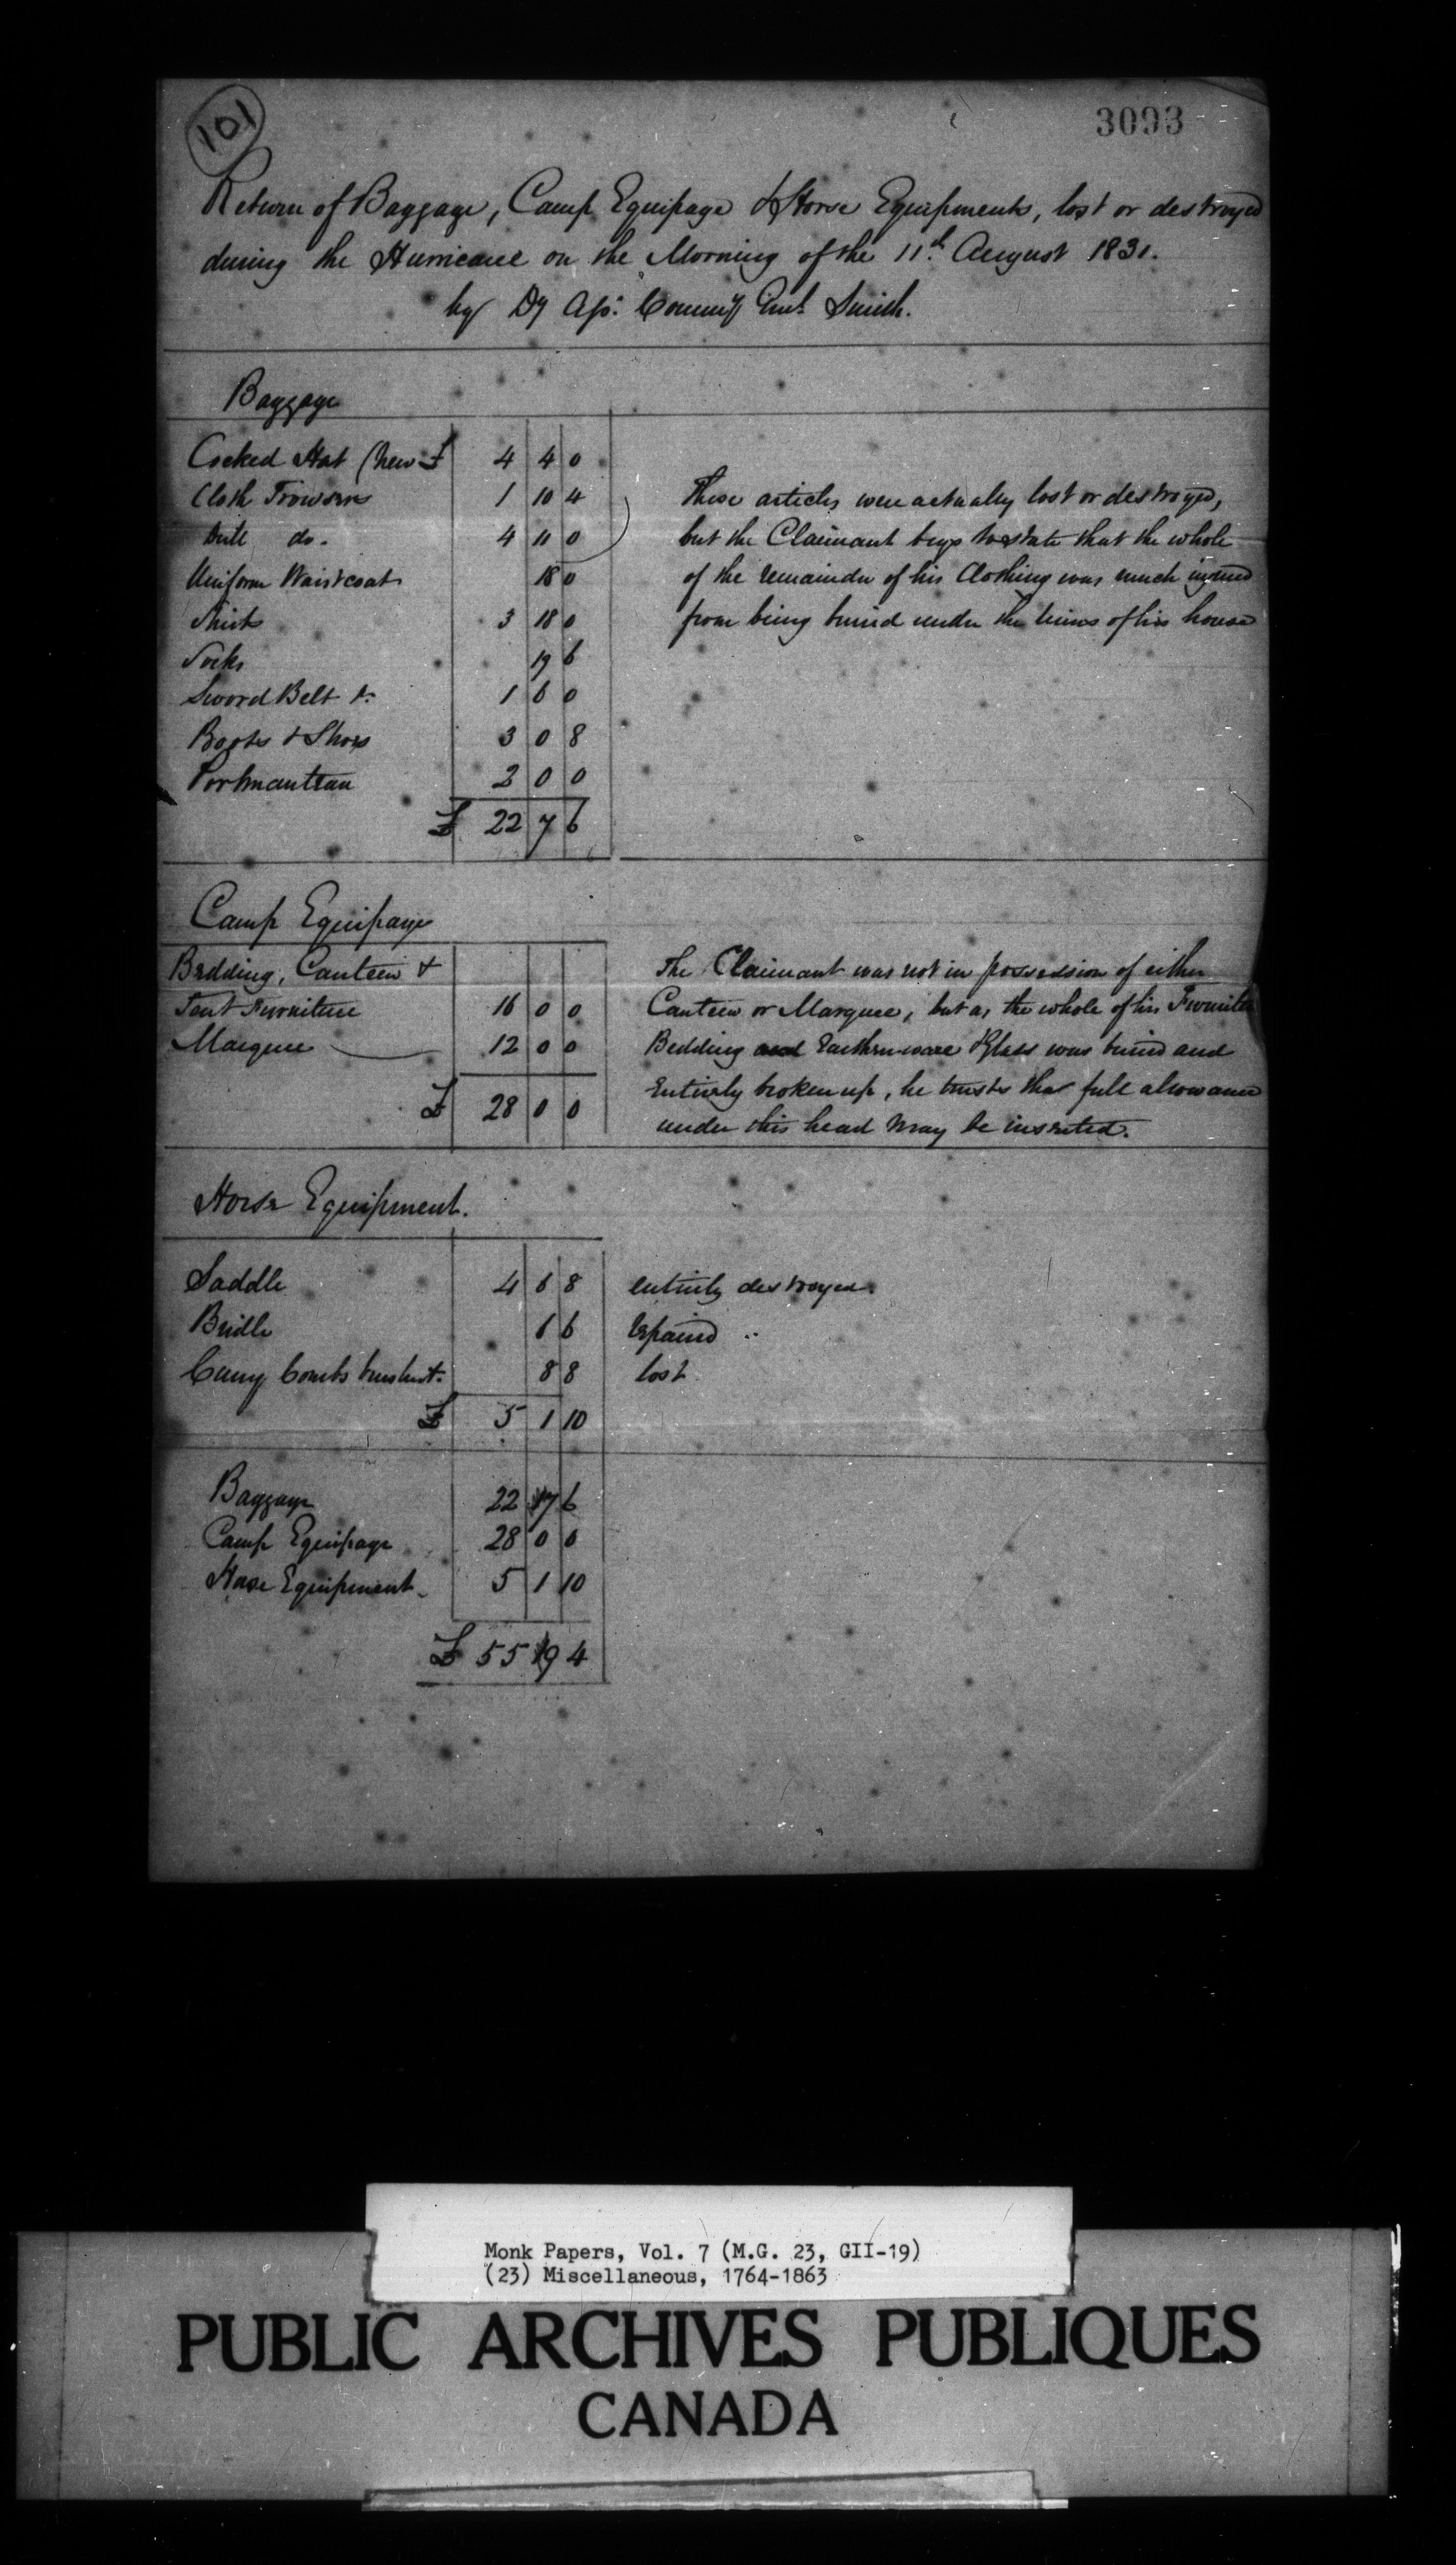 101
3093
Return of Baggage, Camp Equipage & Horse Equipments, lost or destroyed
during the Hurricane on the Morning of the 11th August 1831.
by Dy Ass: Commy Genl Smith.
Baggage
Cocked Hat (New £ 4 4 0
Cloth Trowsers 1 10 4
Drill do. 4 11 0
Uniform Waistcoat 18 0
Shirts 3 18 0
Socks 19 6
Sword Belt &c 1 6 0
Boots & Shoes 3 0 8
Portmanteau 2 0 0
£ 22 7 6
These articles were actually lost or destroyed,
but the Claimant begs to state that the whole
of the remainder of his Clothing was much injured
from being buried under the ruins of his house
Camp Equipage
Bedding, Canteen &
Tent Furniture 16 0 0
Marquee 12 0 0
£ 28 0 0
The Claimant was not in possession of either
Canteen or Marquee, but as the whole of his Furniture
Bedding and Earthenware & Glass was buried and
Entirely broken up, he trusts that full allowance
under this head may be inserted.
Horse Equipment.
Saddle 4 6 8 entirely destroyed.
Bridle 6 6 repaired
Curry Combs brushes &c 8 8 lost
£ 5 1 10
Baggage 22 17 6
Camp Equipage 28 0 0
Horse Equipment 5 1 10
£ 55 19 4
Monk Papers, Vol. 7 (M.G. 23, GII-19)
(23) Miscellaneous, 1764-1863
PUBLIC ARCHIVES PUBLIQUES
CANADA